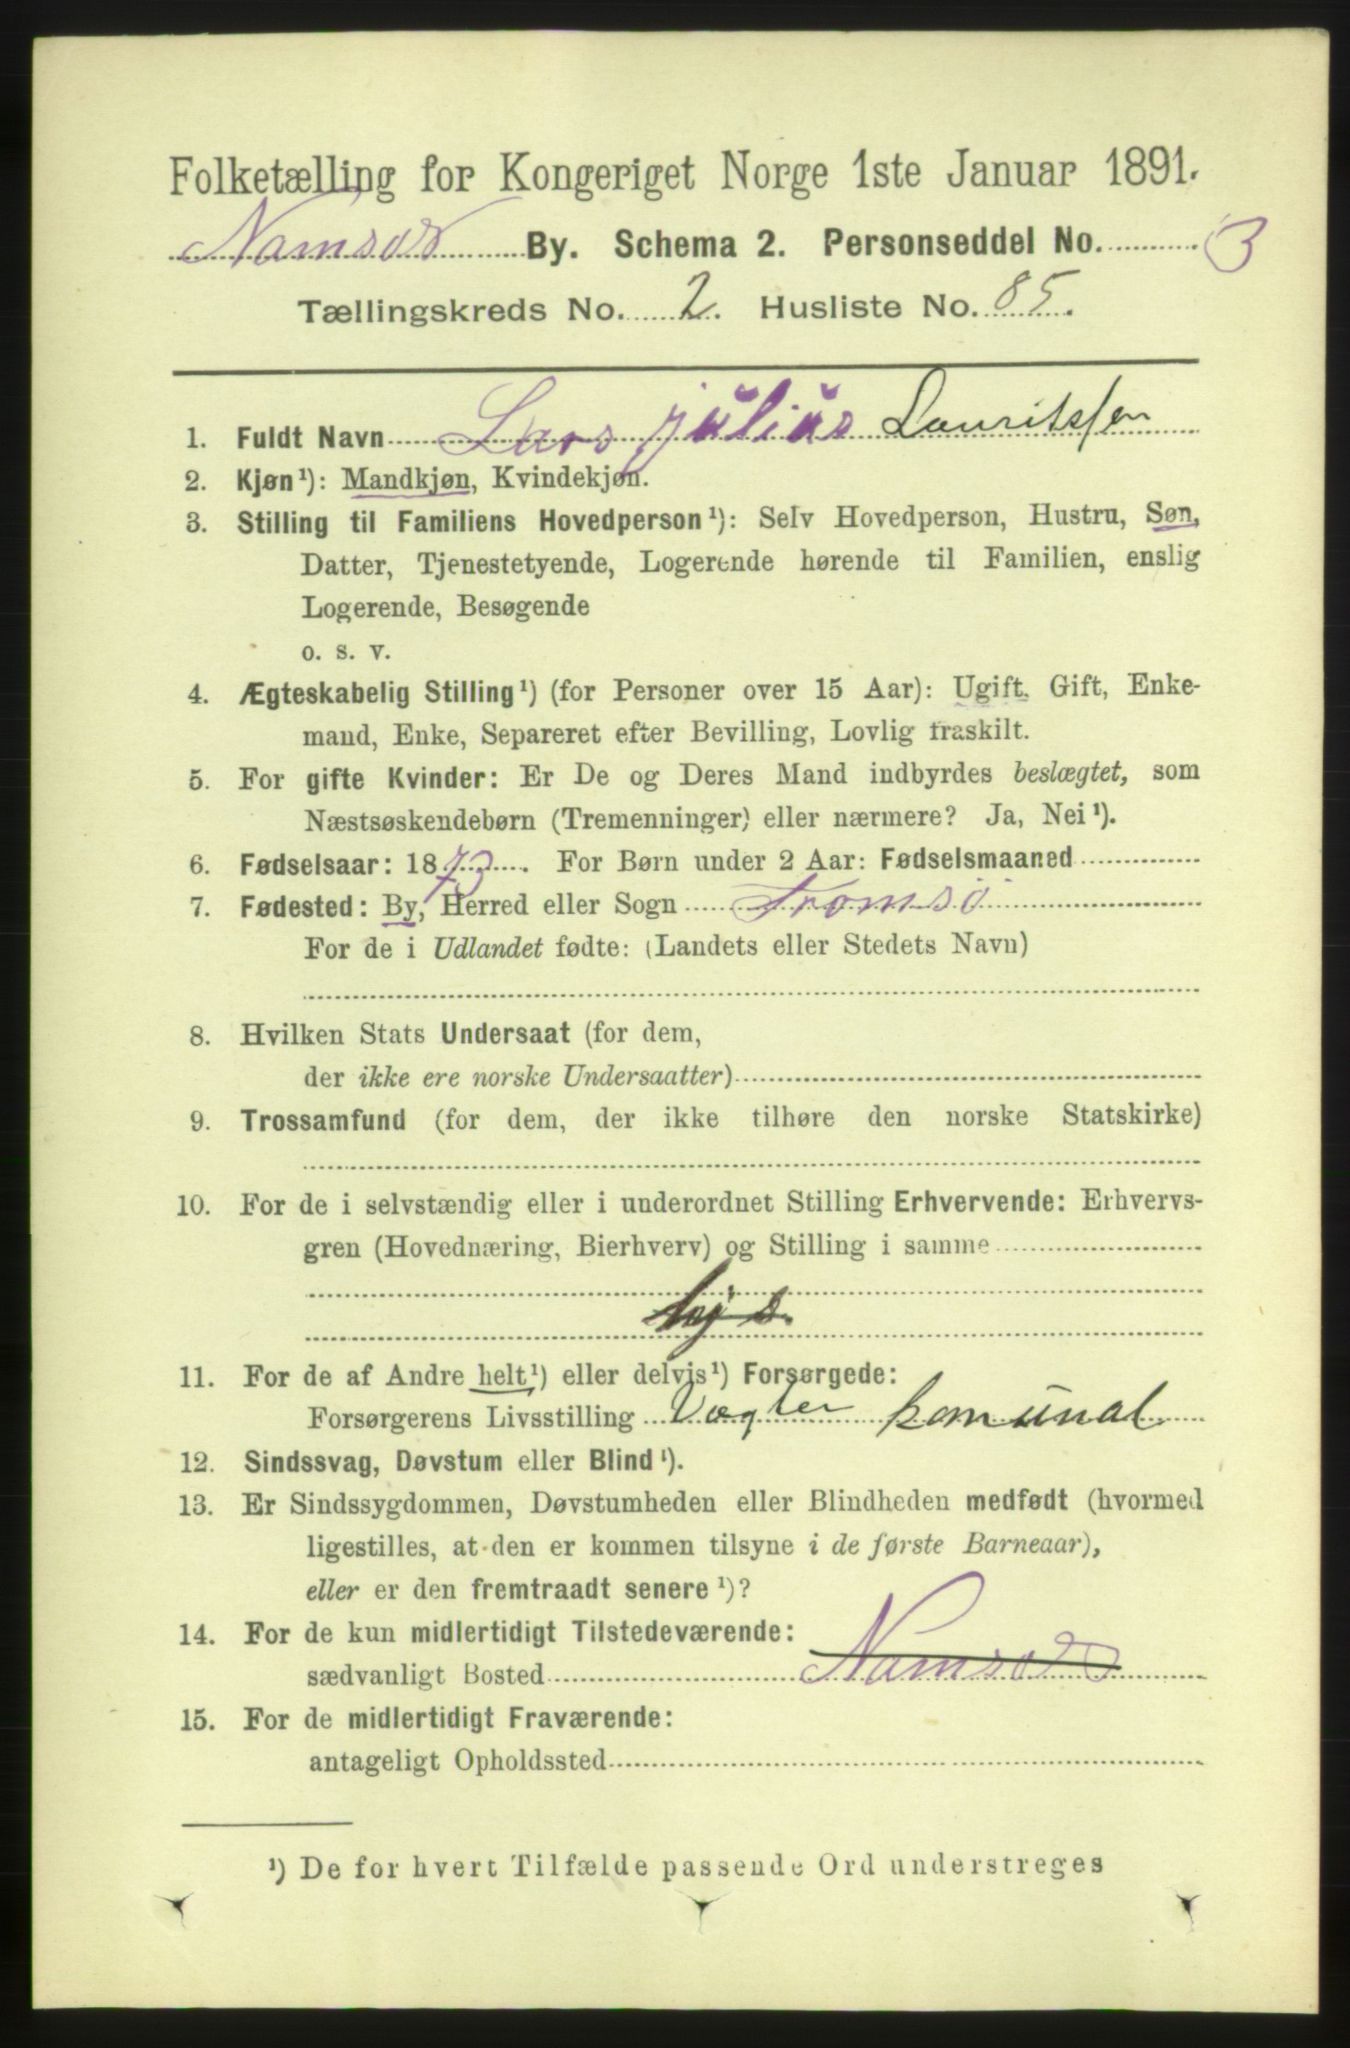 Folketælling for Kongeriget Norge 1ste Januar 1891.
Namsos By. Schema 2. Personseddel No. 3
Tællingskreds No. 2. Husliste No. 85.
1. Fuldt Navn Lars julius Lauritssen
2. Kjøn¹): Mandkjøn, Kvindekjøn.
3. Stilling til Familiens Hovedperson¹): Selv Hovedperson, Hustru, Søn,
Datter, Tjenestetyende, Logerende hørende til Familien, enslig
Logerende, Besøgende
o. s. v.
4. Ægteskabelig Stilling¹) (for Personer over 15 Aar): Ugift, Gift, Enke-
mand, Enke, Separeret efter Bevilling, Lovlig fraskilt.
5. For gifte Kvinder: Er De og Deres Mand indbyrdes beslægtet, som
Næstsøskendebørn (Tremenninger) eller nærmere? Ja, Nei¹).
6. Fødselsaar: 1873. For Børn under 2 Aar: Fødselsmaaned
7. Fødested: By, Herred eller Sogn Tromsø
For de i Udlandet fødte: (Landets eller Stedets Navn)
8. Hvilken Stats Undersaat (for dem,
der ikke ere norske Undersaatter)
9. Trossamfund (for dem, der ikke tilhøre den norske Statskirke)
10. For de i selvstændig eller i underordnet Stilling Erhvervende: Erhvervs-
gren (Hovednæring, Bierhverv) og Stilling i samme
11. For de af Andre helt¹) eller delvis¹) Forsørgede:
Forsørgerens Livsstilling Vægter komunal
12. Sindssvag, Døvstum eller Blind¹).
13. Er Sindssygdommen, Døvstumheden eller Blindheden medfødt (hvormed
ligestilles, at den er kommen tilsyne i de første Barneaar),
eller er den fremtraadt senere¹)?
14. For de kun midlertidigt Tilstedeværende:
sædvanligt Bosted Namsos
15. For de midlertidigt Fraværende:
antageligt Opholdssted
¹) De for hvert Tilfælde passende Ord understreges